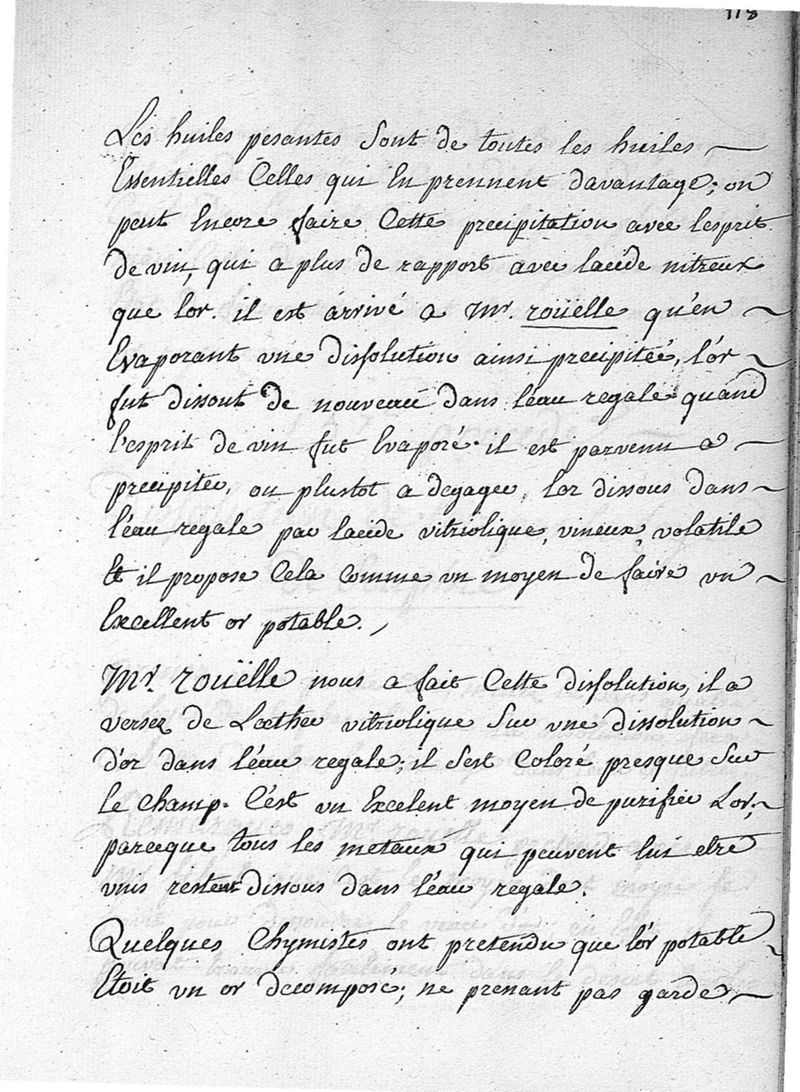 118
Les huiles pesantes sont de toutes les huiles
Essentielles Celles qui En prennent davantage; on
peut Encore faire Cette precipitation avec l'esprit
de vin, qui a plus de rapport avec lacide nitreux
que lor. il est arrivé a Mr. roüelle qu'en
Evaporant vne dissolution ainsi precipiteé, l'or
fut dissout de nouveau dans l'eau regale quand
l'esprit de vin fut Evaporé. il est parvenu a
precipiter, ou plustot a degager, lor dissous dans
l'eau regale par lacide vitriolique, vineux, volatile
Et il propose Cela Comme vn moyen de faire vn
Excellent or potable.
Mr. roüelle nous a fait Cette dissolution, il a
versez de Lœther vitriolique Sur vne dissolution
d'or dans l'eau regale; il Sest Coloré presque Sur
le Champ. C'est vn Excelent moyen de purifier Lor;
parceque tous les metaux qui peuvent lui etre
vnis restent dissous dans l'eau regale.
Quelques Chymistes ont pretendu que l'or potable
Etoit vn or decomposé; ne prenant pas garde